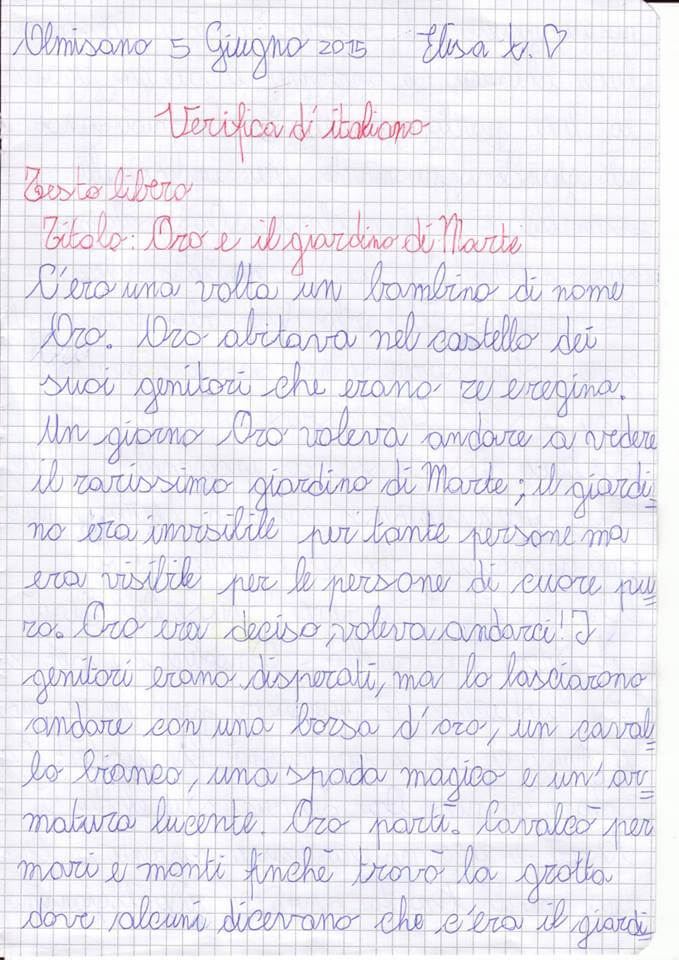 Olmisano 5 Giugno 2015 Elisa V. ♡
Verifica d'italiano
Testo libero
Titolo: Oro e il giardino di Marte
C'era una volta un bambino di nome
Oro. Oro abitava nel castello dei
suoi genitori che erano re e regina.
Un giorno Oro voleva andare a vedere
il rarissimo giardino di Marte; il giardi=
no era invisibile per tante persone ma
era visibile per le persone di cuore pu=
ro. Oro era deciso, voleva andarci! I
genitori erano disperati, ma lo lasciarono
andare con una borsa d'oro, un caval=
lo bianco, una spada magica e un'ar=
matura lucente. Oro partì. Cavalcò per
mari e monti finchè trovò la grotta
dove alcuni dicevano che c'era il giardi=